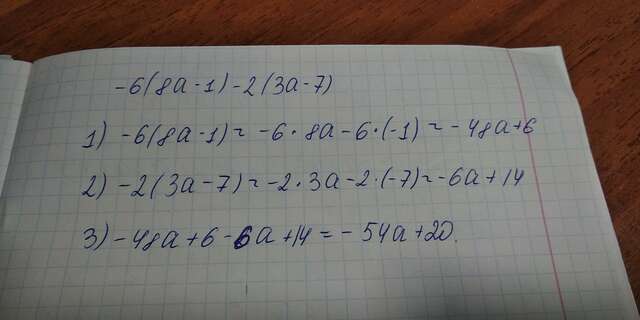 -6(8a-1)-2(3a-7)
1) -6(8a-1)= -6·8a-6·(-1)=-48a+6
2) -2(3a-7)=-2·3a-2·(-7)=-6a+14
3) -48a+6-6a+14=-54a+20.